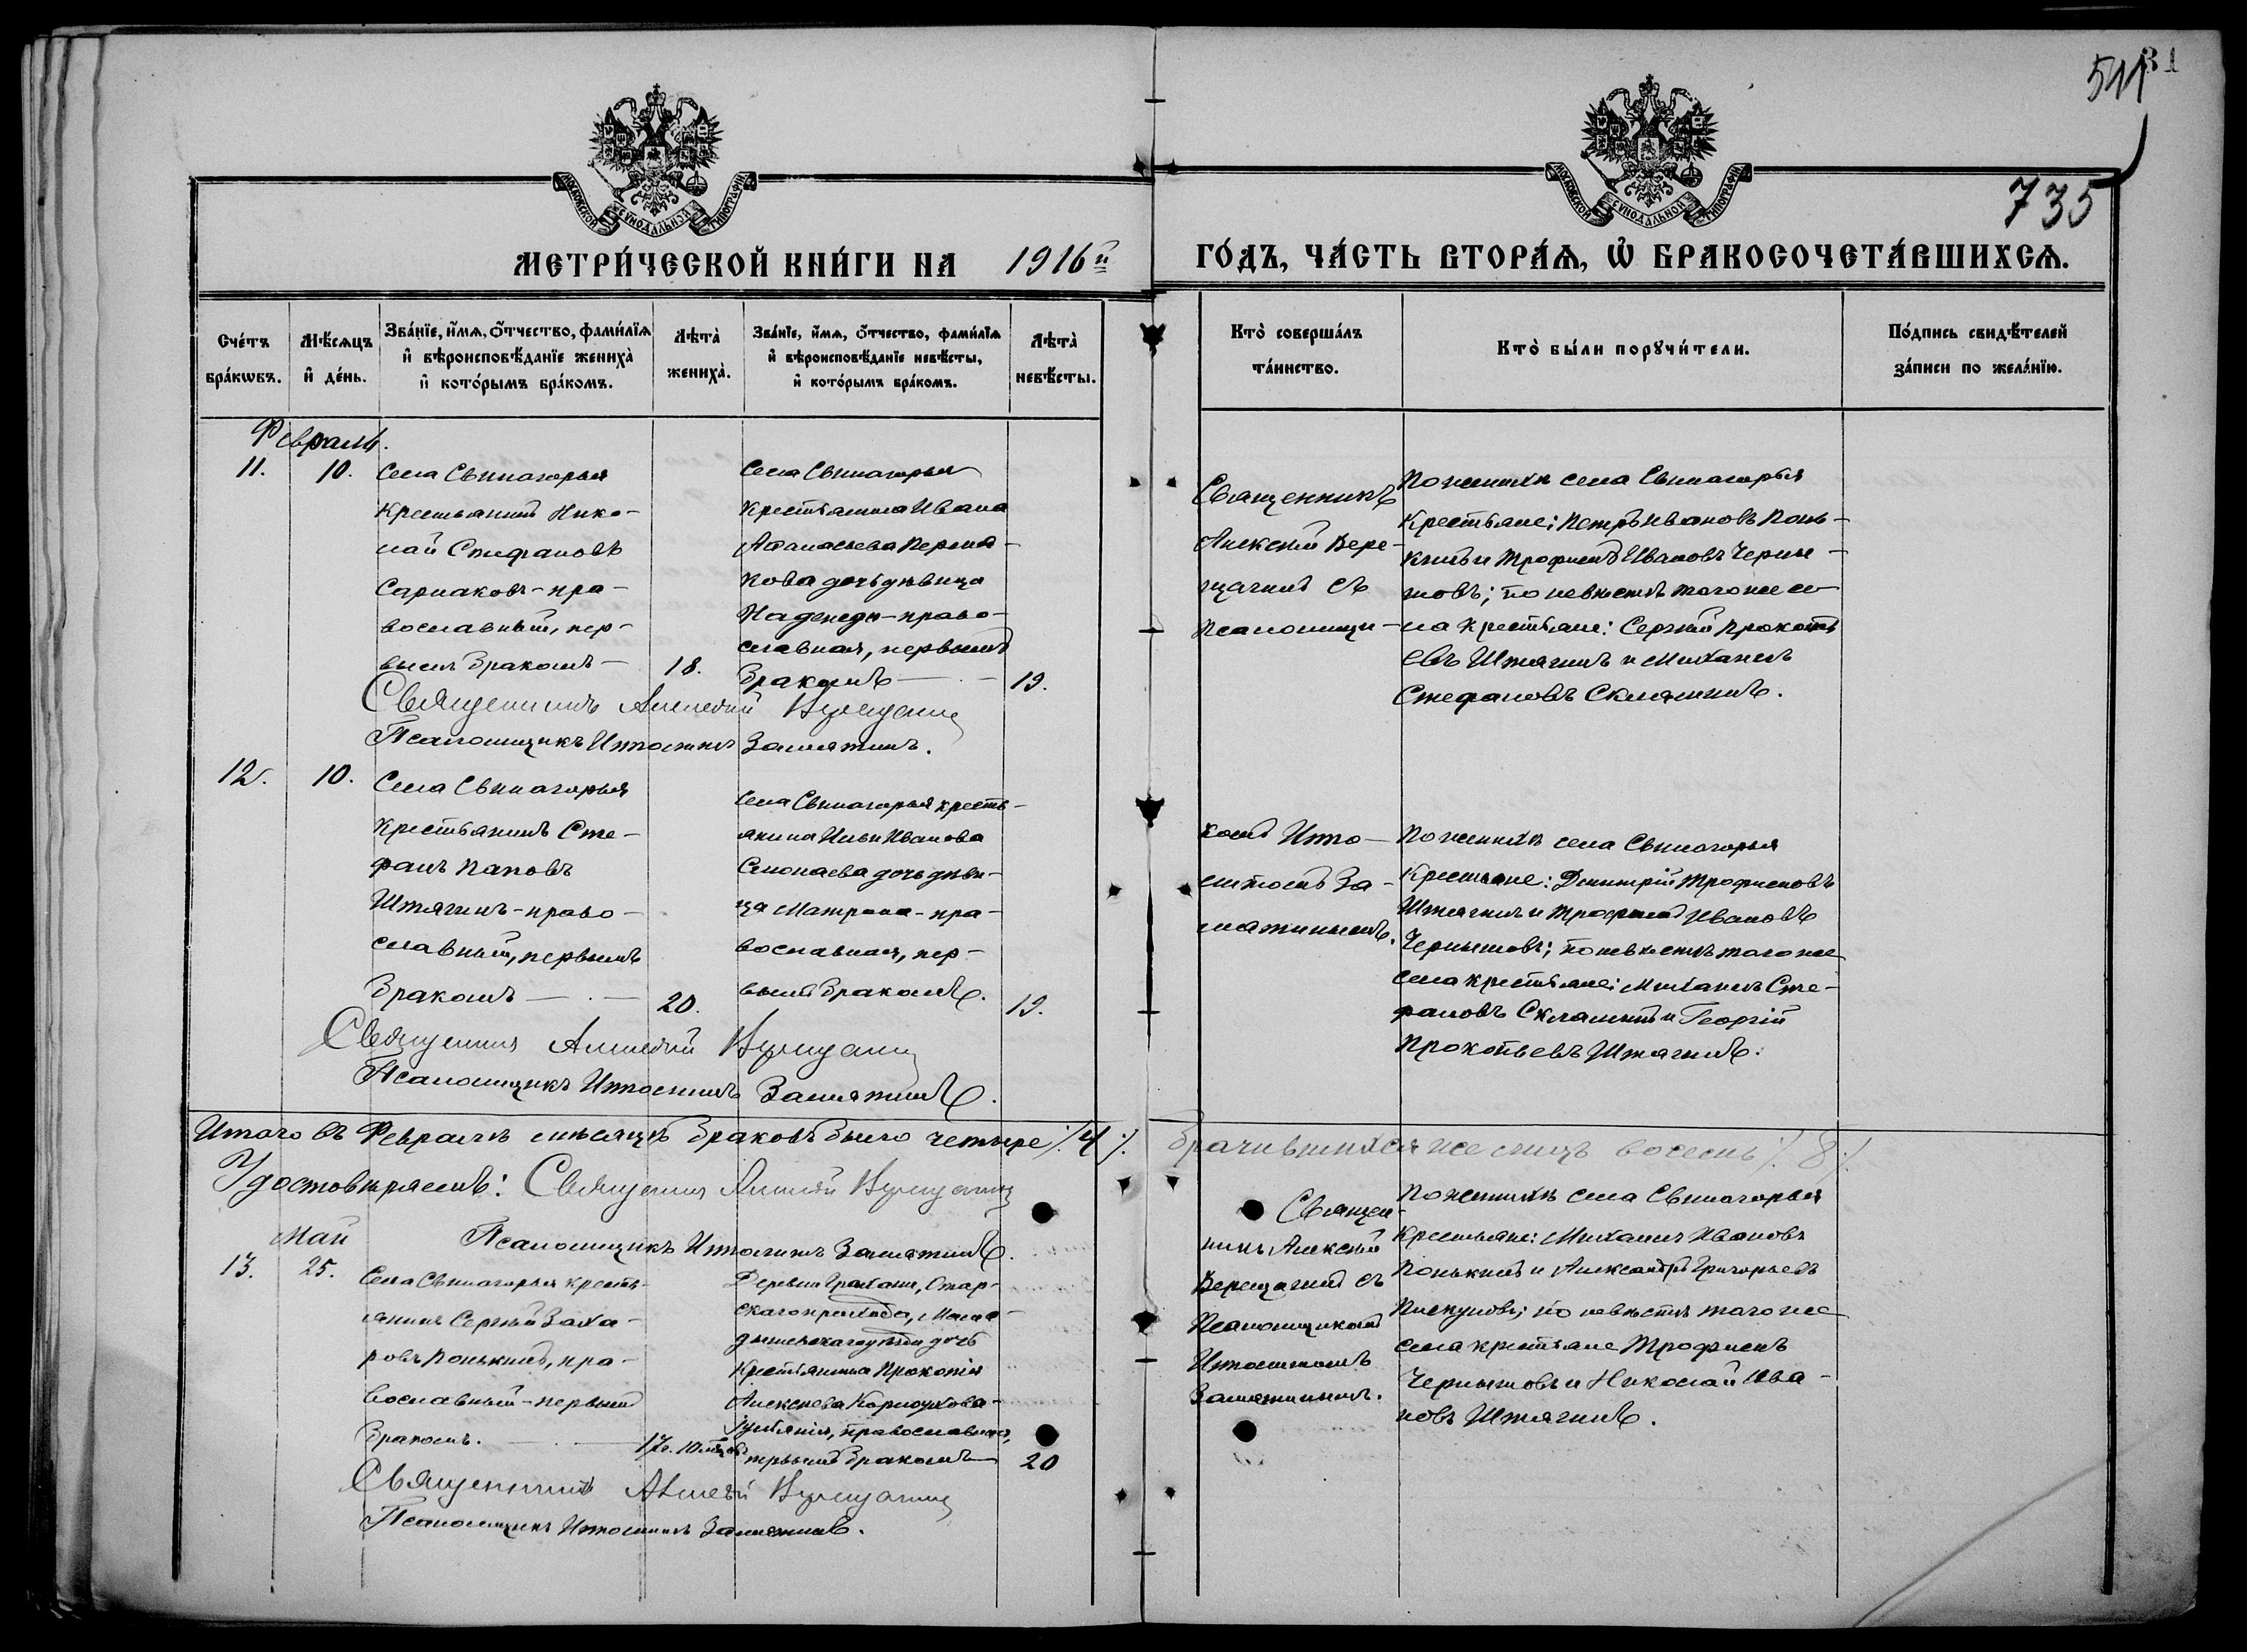 511
31
735
МОСКОВСКОЙ СУНОДАЛЬНОЙ ТИПОГРАФІИ
МОСКОВСКОЙ СУНОДАЛЬНОЙ ТИПОГРАФІИ
МЕТРИ́ЧЕСКОЙ КНИ́ГИ НА 1916й ГО́ДЪ, ЧА́СТЬ ВТОРА́Ѧ, Ѽ БРАКОСОЧЕТА́ВШИХСѦ.
Сче́тъ бра́кѡвъ.
Мѣ́сѧцъ и҆ де́нь.
Зва́нїе, и҆́мѧ, ѻ҆́тчество, фами́лїѧ
и҆ вѣроисповѣ́данїе жениха̀
и҆ кото́рымъ бра́комъ.
Лѣта̀ жениха̀.
Зва́нїе, и҆́мѧ, ѻ҆́тчество, фами́лїѧ
и҆ вѣроисповѣ́данїе невѣ́сты,
и҆ кото́рымъ бра́комъ.
Лѣта̀ невѣ́сты.
Кто̀ соверша́лъ та́инство.
Кто̀ бы́ли порꙋчи́тели.
По́дпись свидѣ́телей
за́писи по жела́нїю.
Февраль.
11.
10.
Села Свиногорья
крестьянинъ Нико-
лай Епифановъ
Сармаковъ - пра-
вославный, пер-
вымъ бракомъ —
18.
Села Свиногорья
крестьянина Ивана
Афанасьева
кова дочь дѣвица
Надежда - право-
славная, первымъ
бракомъ —
19.
Священникъ
Алексій Вере-
щагинъ съ
псаломщи-
По женихѣ села Свиногорья
крестьяне: Петръ Ивановъ Понь-
кинъ и Трофимъ Ивановъ Черны-
шовъ; по невѣстѣ того же се-
ла крестьяне: Сергѣй Прокопь-
евъ Штягинъ и Михаилъ
Стефановъ Склямининъ.
Священникъ Алексій Верещагинъ
Псаломщикъ Иттолитъ Замятинъ.
12.
10.
Села Свиногорья
крестьянинъ Сте-
фанъ Паповъ
Штягинъ - право-
славный, первымъ
бракомъ —
20.
Села Свиногорья кресть-
янина Ильи Иванова
дочь дѣви-
ца Матрона - пра-
вославная, пер-
вымъ бракомъ.
19.
комъ Иппо-
литомъ За-
мятинымъ.
По женихѣ села Свиногорья
крестьяне: Димитрій Трофимовъ
Штягинъ и Трофимъ Ивановъ
Чернышовъ; по невѣстѣ того же
села крестьяне: Михаилъ Сте-
фановъ Склямининъ и Георгій
Прокопьевъ Штягинъ.
Священникъ Алексій Верещагинъ
Псаломщикъ Ипполитъ Замятинъ.
Итого въ Февралѣ мѣсяцѣ браковъ было четыре ·/.4·/. Брачившихся же лицъ восемь ·/.8·/.
Удостовѣряемъ: Священникъ Алексій Верещагинъ
Псаломщикъ Ипполитъ Замятинъ.
Май
13.
25.
Села Свиногорья кресть-
янинъ Сергѣй Заха-
ровъ Понькинъ, пра-
вославный - первымъ
бракомъ. —
17л. 10 мѣсяцевъ
Деревни Грахани, Стар-
скаго прихода, Мама-
дышскаго уѣзда дочь
крестьянина Прокопія
Алексѣева Кормухова -
Іуліанія, православная,
первымъ бракомъ
20
Священ-
никъ Алексій
Верещагинъ съ
псаломщикомъ
Ипполитомъ
Замятинымъ.
По женихѣ села Свиногорья
крестьяне: Михаилъ Ивановъ
Понькинъ и Александръ Григорьевъ
Пискуновъ; по невѣстѣ того же
села крестьяне Трофимъ
Чернышовъ и Николай Ива-
новъ Штягинъ.
Священникъ Алексій Верещагинъ
Псаломщикъ Ипполитъ Замятинъ.